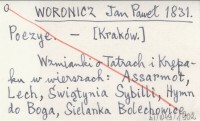 WORONICZ Jan Paweł 1831.
Poezye. - [Kraków.]
Wzmianki o Tatrach i Krępa-
ku w wierszach: Assarmot,
Lech, Świątynia Sybilli, Hymn
do Boga, Sielanka Bolechowice,